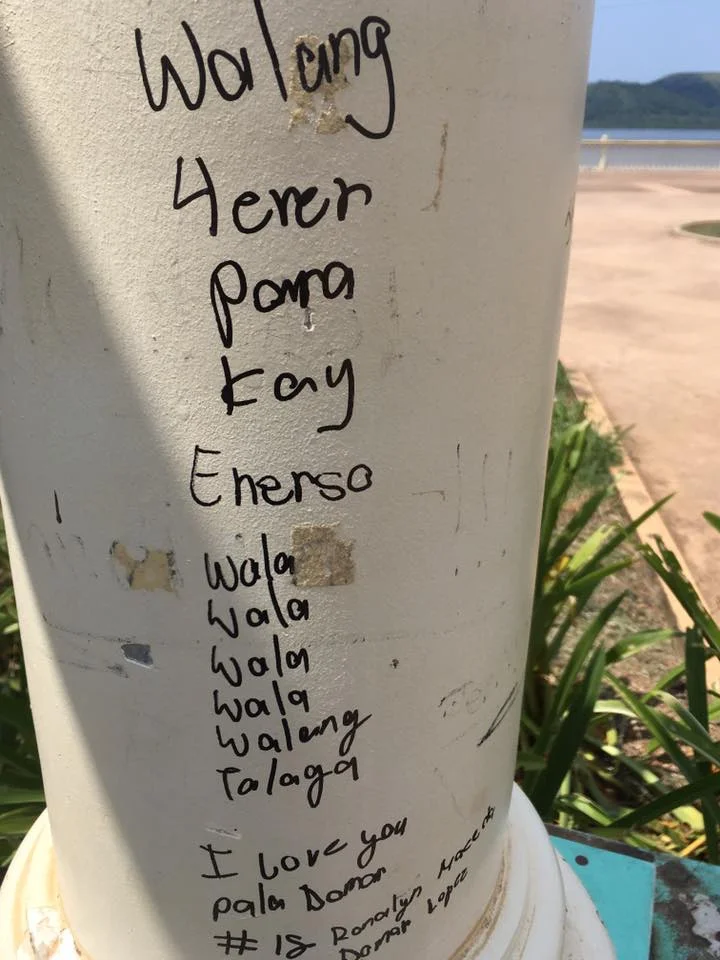 Walang
4ever
para
kay
Enerso
Wala
Wala
Wala
Wala
Walang
Talaga
I Love you
pala Domar
# 18 Ronalyn Macedi
Domar Lopez